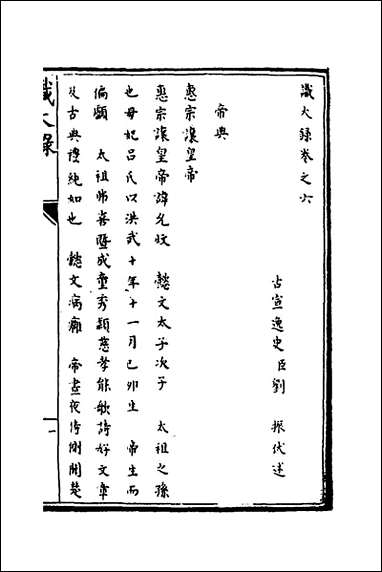 識大錄卷之六
古宣逸史臣劉 振伏述
帝典
惠宗讓皇帝
惠宗讓皇帝諱允炆 懿文太子次子 太祖之孫
也母妃吕氏以洪武十年十一月己卯生 帝生而
偏顱 太祖弗喜暨成童秀穎慈孝能歌詩好文章
及古典禮純如也 懿文病癰 帝晝夜侍刚開楚
識大錄
一